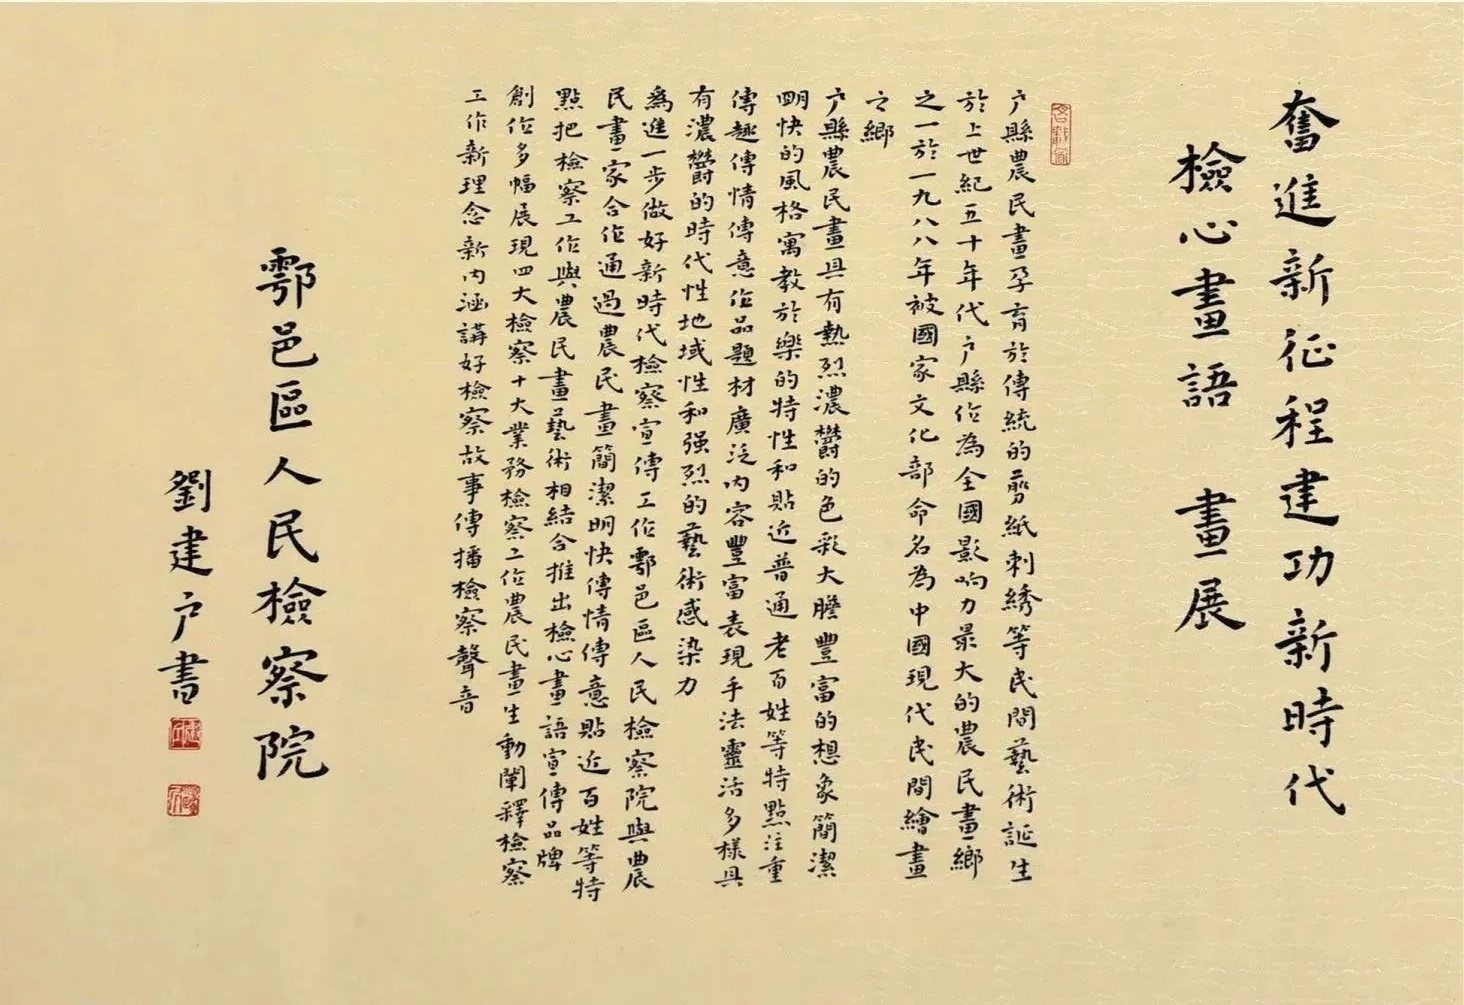 奮進新征程建功新時代
檢心畫語 畫展
户縣農民畫孕育於傳統的剪紙刺綉等民間藝術誕生
於上世紀五十年代户縣作為全國影响力最大的農民畫鄉
之一於一九八八年被國家文化部命名為中國現代民間繪畫
之鄉
户縣農民畫具有熱烈濃鬱的色彩大膽豐富的想象簡潔
明快的風格寓教於樂的特性和貼近普通老百姓等特點注重
傳趣傳情傳意作品題材廣泛内容豐富表現手法靈活多樣具
有濃鬱的時代性地域性和强烈的藝術感染力
為進一步做好新時代檢察宣傳工作鄠邑區人民檢察院與農
民畫家合作通過農民畫簡潔明快傳情傳意貼近百姓等特
點把檢察工作與農民畫藝術相結合推出檢心畫語宣傳品牌
創作多幅展現四大檢察十大業務檢察工作農民畫生動闡釋檢察
工作新理念新内涵講好檢察故事傳播檢察聲音
鄠邑區人民檢察院
劉建户書